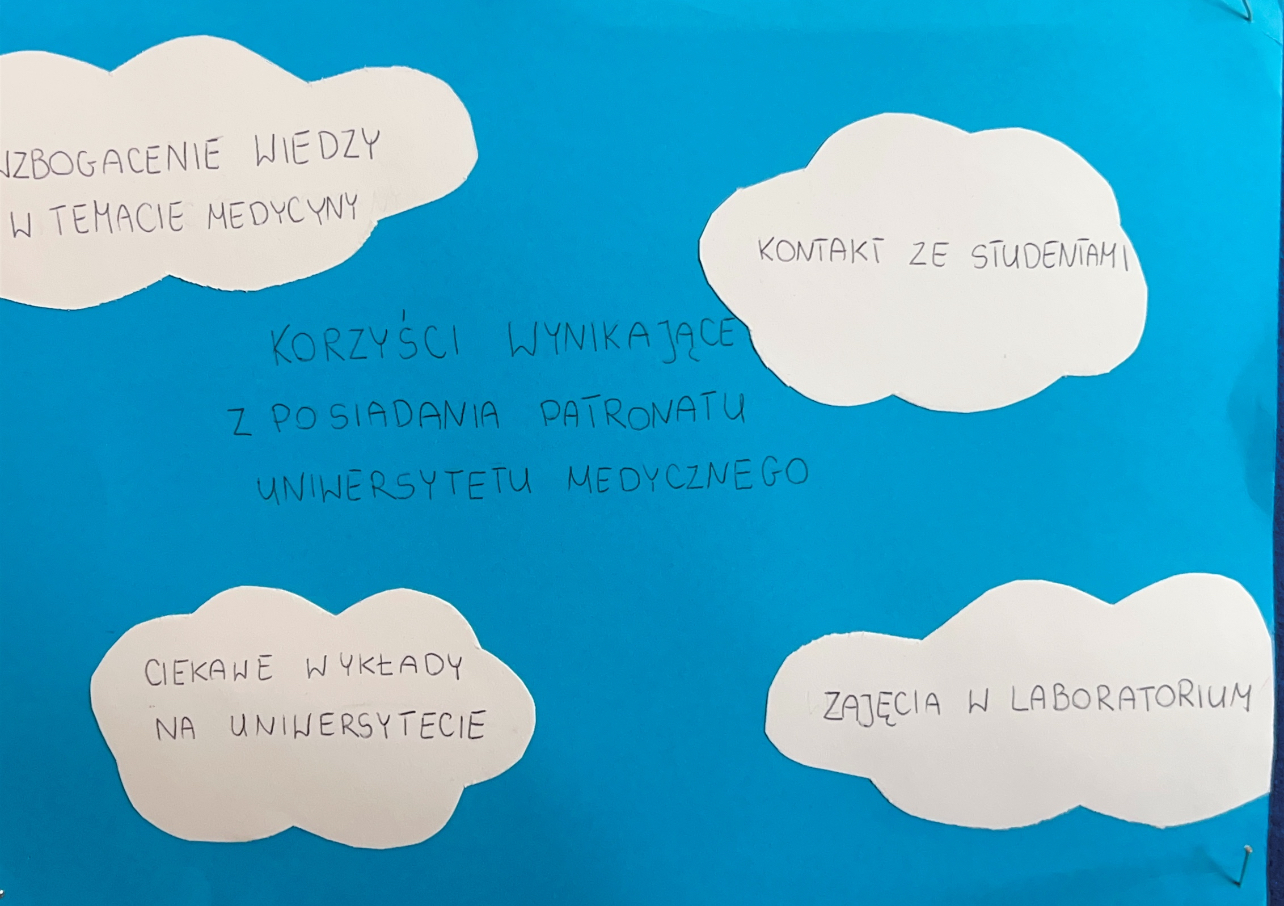 WZBOGACENIE WIEDZY
W TEMACIE MEDYCYNY
KONTAKT ZE STUDENTAMI
KORZYŚCI WYNIKAJĄCE
Z POSIADANIA PATRONATU
UNIWERSYTETU MEDYCZNEGO
CIEKAWE WYKŁADY
NA UNIWERSYTECIE
ZAJĘCIA W LABORATORIUM